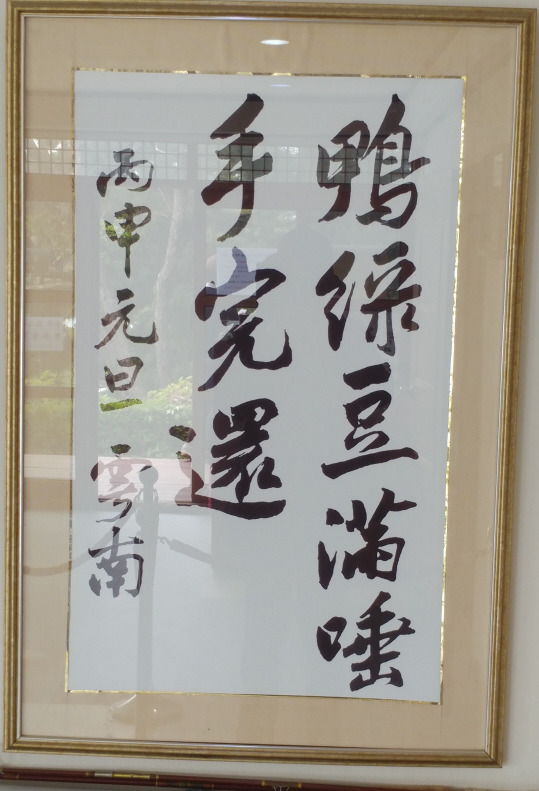 鴨綠豆滿唾
手完還
丙申元旦 雲南